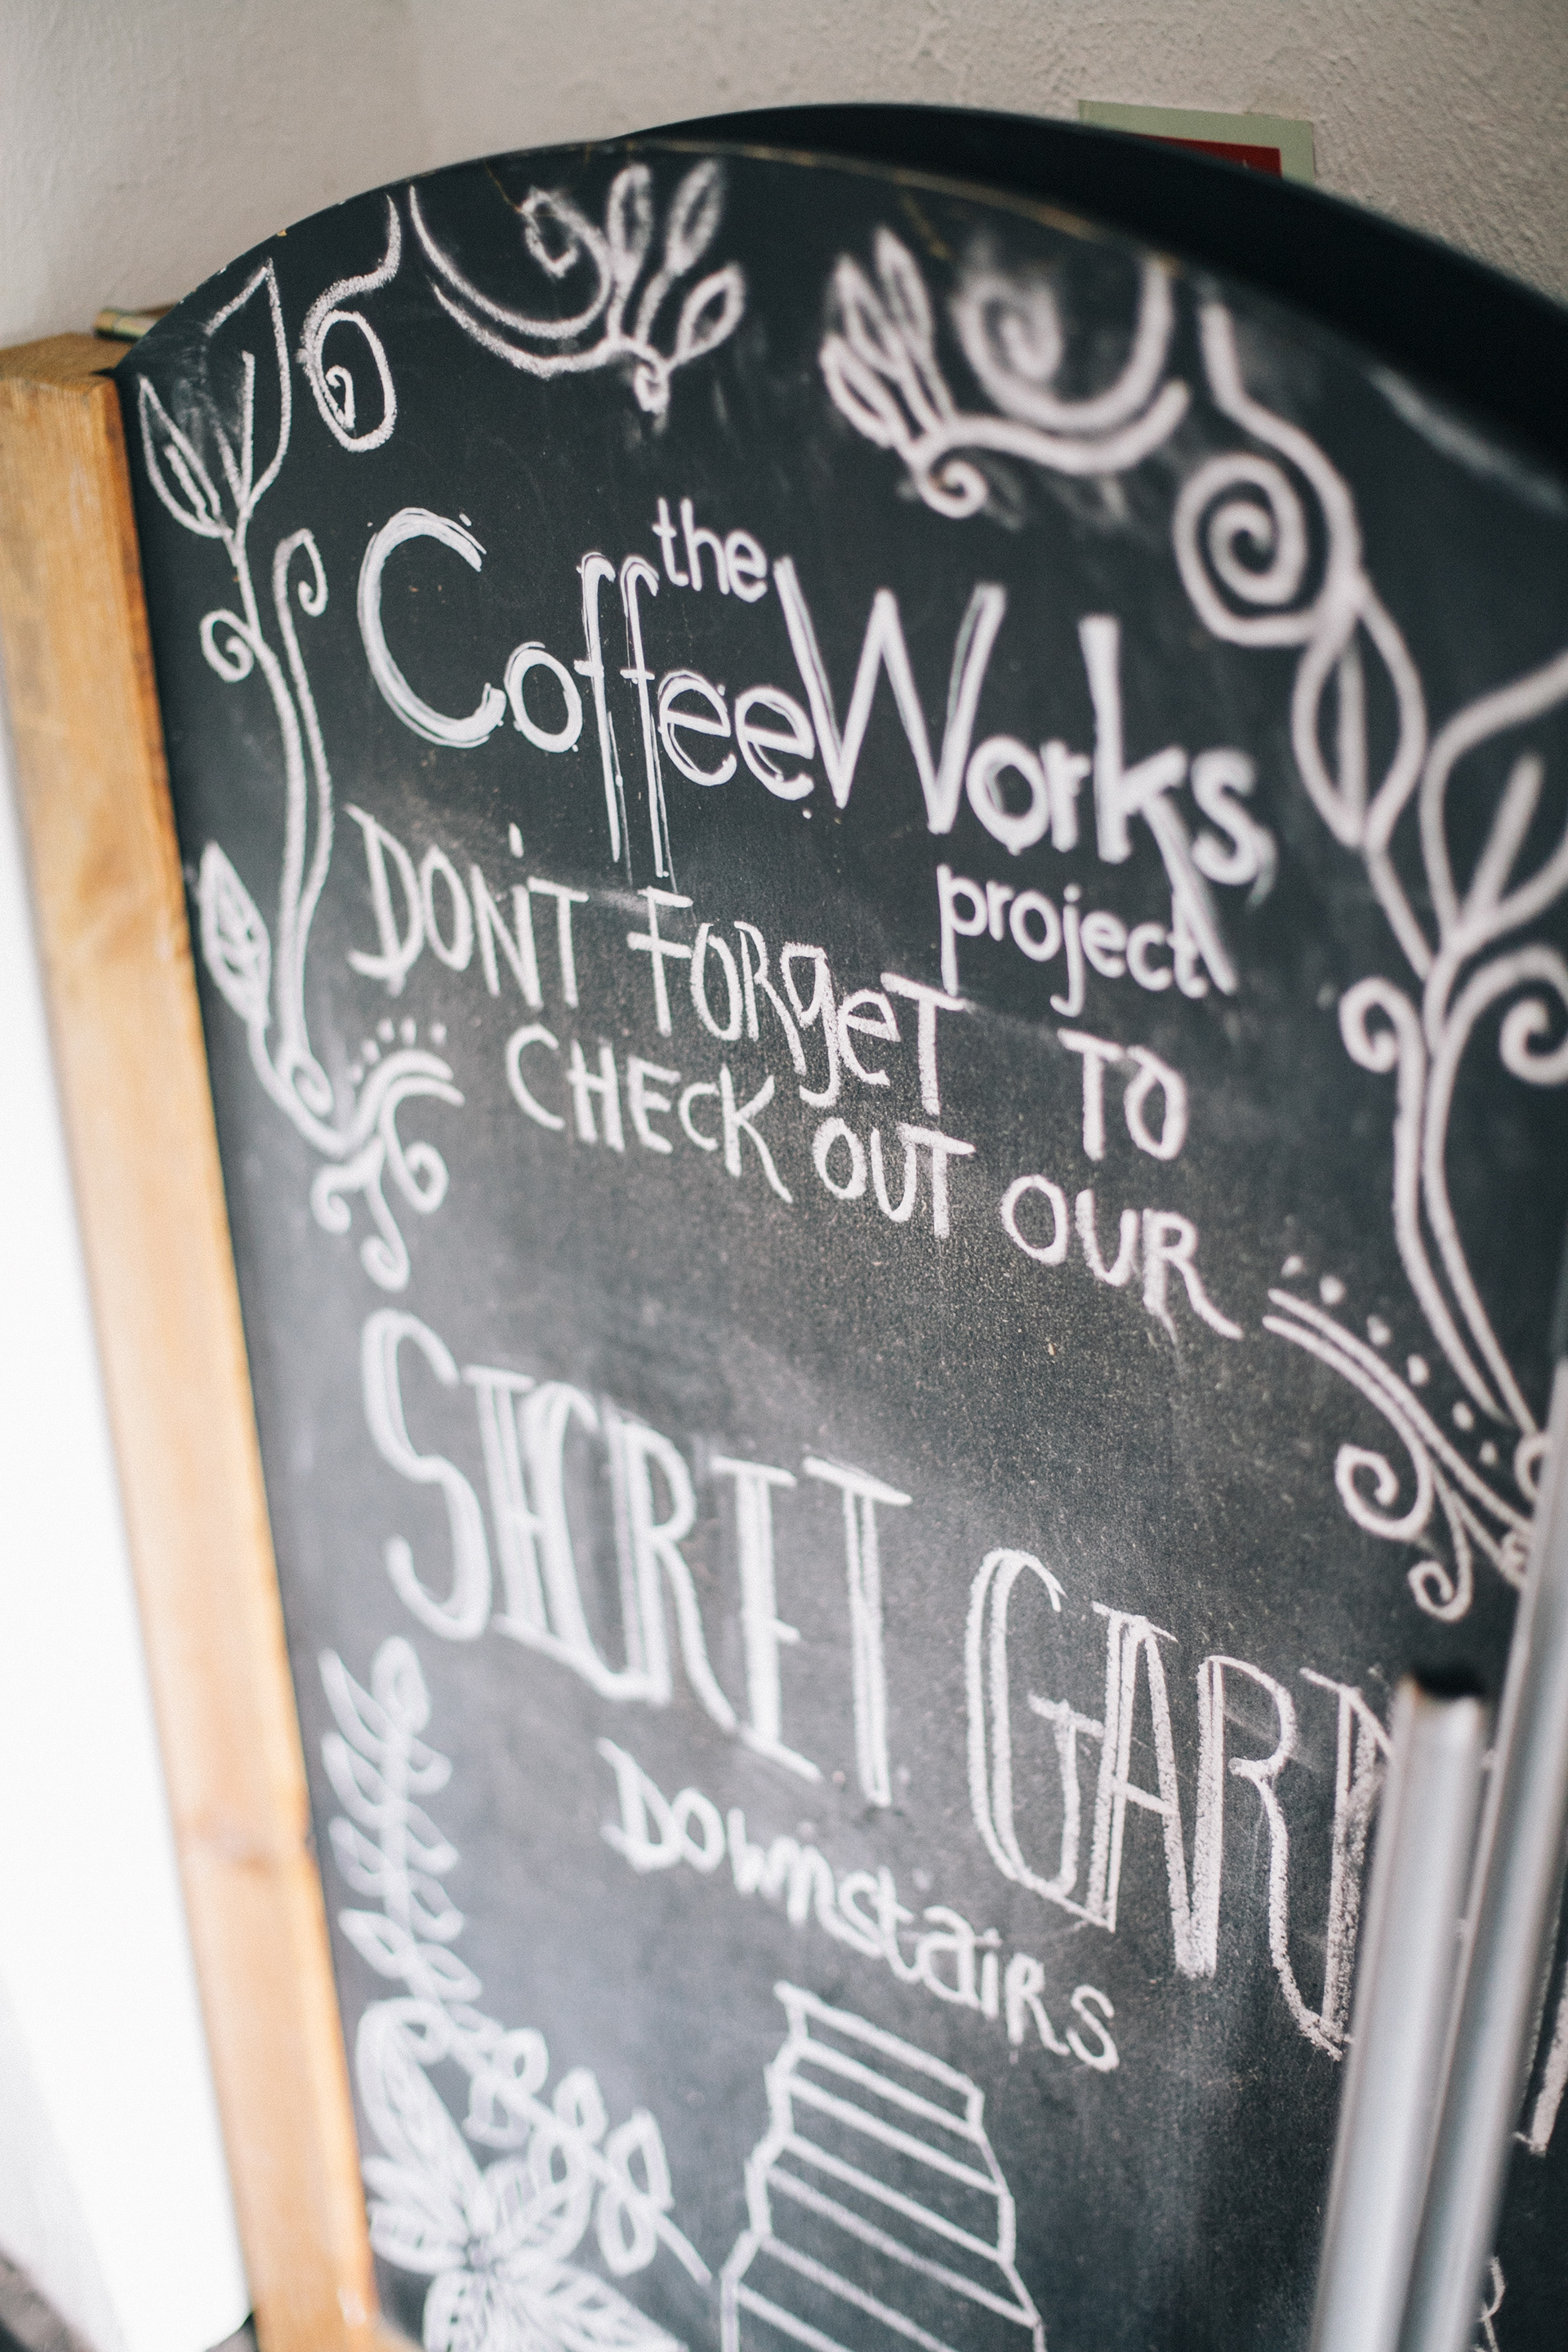 the
CoffeeWorks
project
DON'T FORgeT TO
CHECK OUT OUR
SECRET GARD
DOwnstaiRS